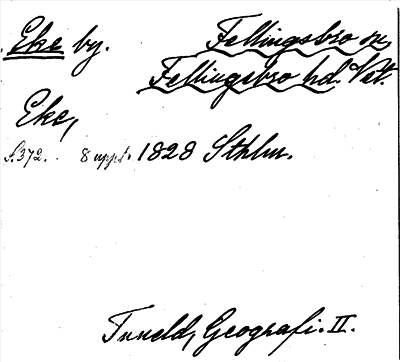 Eke by.
Fellingsbro sn
Fellingsbro hd. Vst.
Eke,
S. 372. 8 uppl. 1828 Sthlm.
Tuneld, Geografi. II.